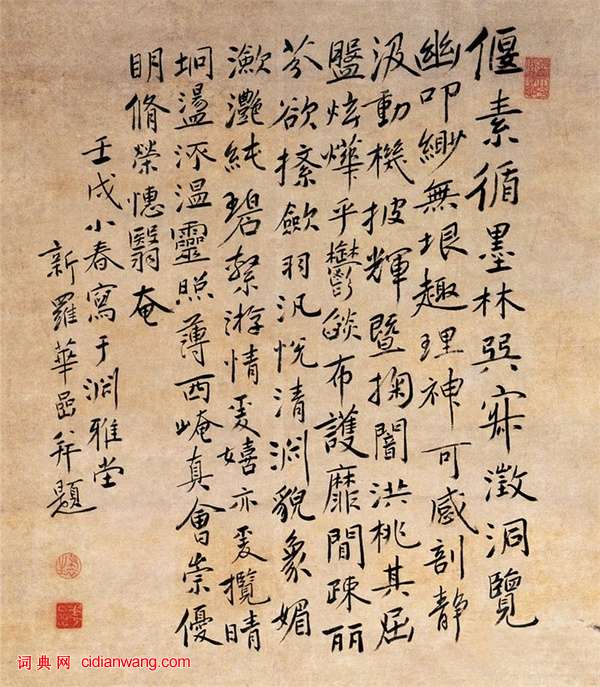 偃素循墨林巽寂澂洞覽
幽叩緲無垠趣理神可感剖靜
汲動機披輝暨掬闇洪桃其屈
盤炫燁乎鬱燄布護靡間疎丽
芬欲揉歛羽汎悅清淵貌象媚
瀲灩純碧絜游情爰嬉亦爰攬晴
坰盪流溫靈照薄西崦真會崇優
明脩榮翳奄
壬戌小春寫于淵雅堂
新羅華嵒并題
词典网 cidianwang.com